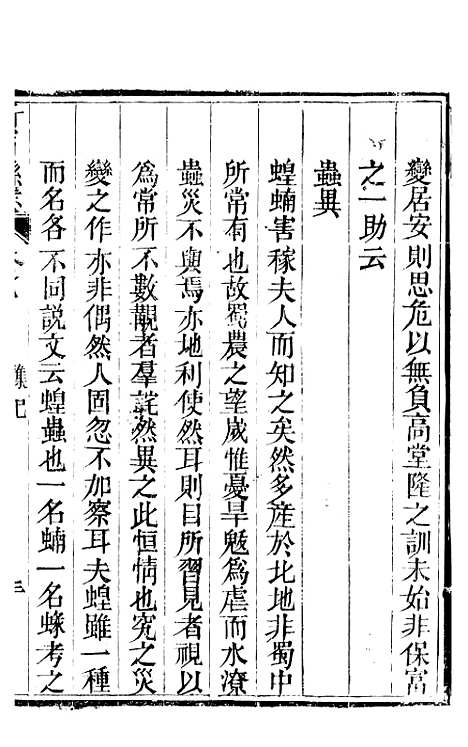 變居安則思危以無負高堂隆之訓未始非保富
之一助云
蟲異
蝗蝻害稼夫人而知之矣然多產於北地非蜀中
所常有也故蜀農之望歲惟憂旱魃爲虐而水潦
蟲災不與焉亦地利使然耳則目所習見者視以
爲常所不數觀者羣詫然異之此恒情也究之災
變之作亦非偶然人固忽不加察耳夫蝗雖一種
而名各不同説文云蝗螽也一名蝻一名蝝考之
雜記
三